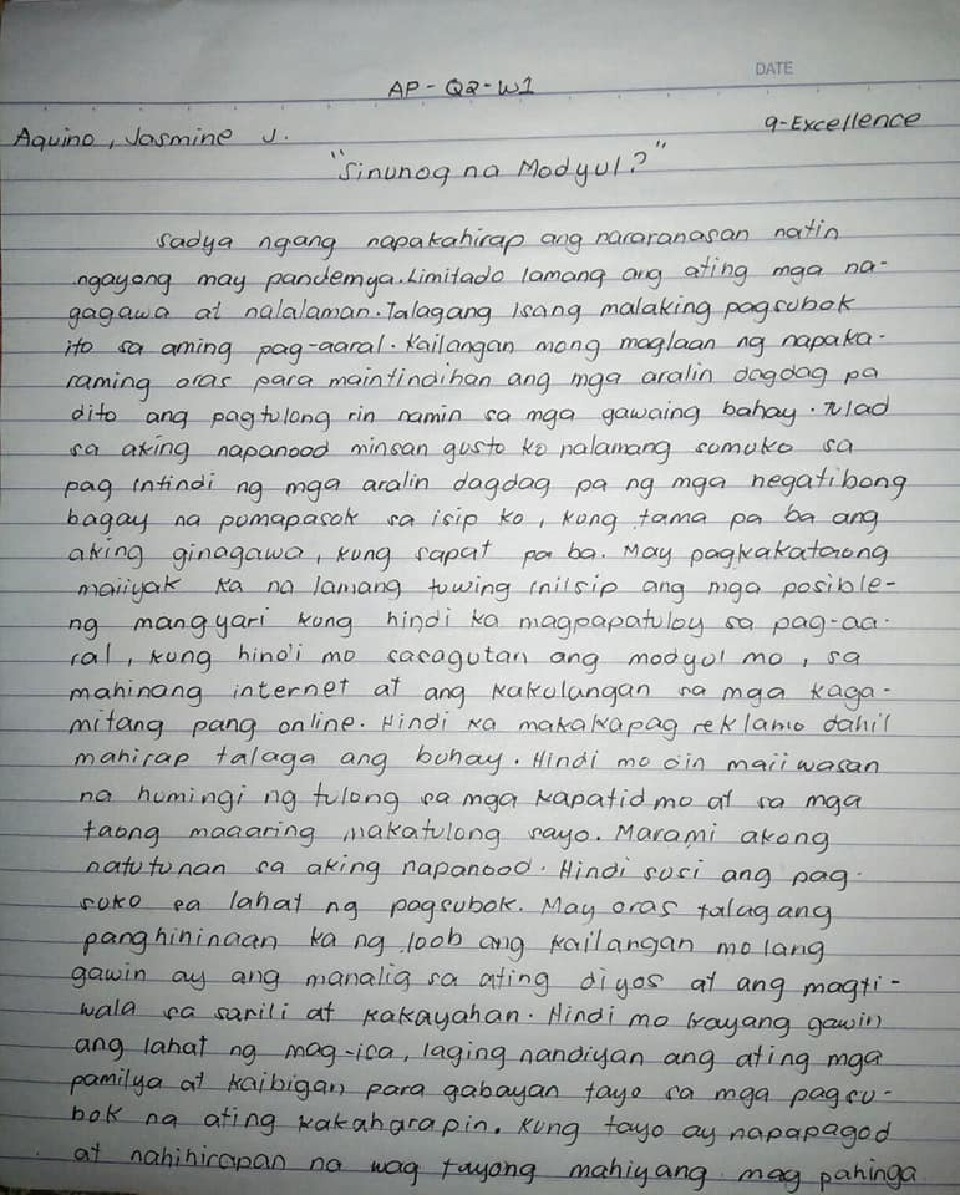 DATE
AP - Q2 - W1
Aquino, Jasmine J.
9-Excellence
"Sinunog na Modyul?"
Sadya ngang napakahirap ang nararanasan natin
ngayong may pandemya. Limitado lamang ang ating mga na-
gagawa at nalalaman. Talagang isang malaking pagsubok
ito sa aming pag-aaral. Kailangan mong maglaan ng napaka-
raming oras para maintindihan ang mga aralin dagdag pa
dito ang pagtulong rin namin sa mga gawaing bahay. Tulad
sa aking napanood minsan gusto ko nalamang sumuko sa
pag intindi ng mga aralin dagdag pa ng mga negatibong
bagay na pumapasok sa isip ko, kung tama pa ba ang
aking ginagawa, kung sapat pa ba. May pagkakataong
maiiyak ka na lamang tuwing iniisip ang mga posible-
ng mangyari kung hindi ka magpapatuloy sa pag-aa-
ral, kung hindi mo sasagutan ang modyul mo, sa
mahinang internet at ang kakulangan sa mga kaga-
mitang pang online. Hindi ka makakapag reklamo dahil
mahirap talaga ang buhay. Hindi mo din maiiwasan
na humingi ng tulong sa mga kapatid mo at sa mga
taong maaaring makatulong sayo. Marami akong
natutunan sa aking napanood. Hindi susi ang pag-
suko sa lahat ng pagsubok. May oras talagang
panghihinaan ka ng loob ang kailangan mo lang
gawin ay ang manalig sa ating diyos at ang magti-
wala sa sarili at kakayahan. Hindi mo kayang gawin
ang lahat ng mag-isa, laging nandiyan ang ating mga
pamilya at kaibigan para gabayan tayo sa mga pagsu-
bok na ating kakaharapin. Kung tayo ay napapagod
at nahihirapan na wag tayong mahiyang mag pahinga